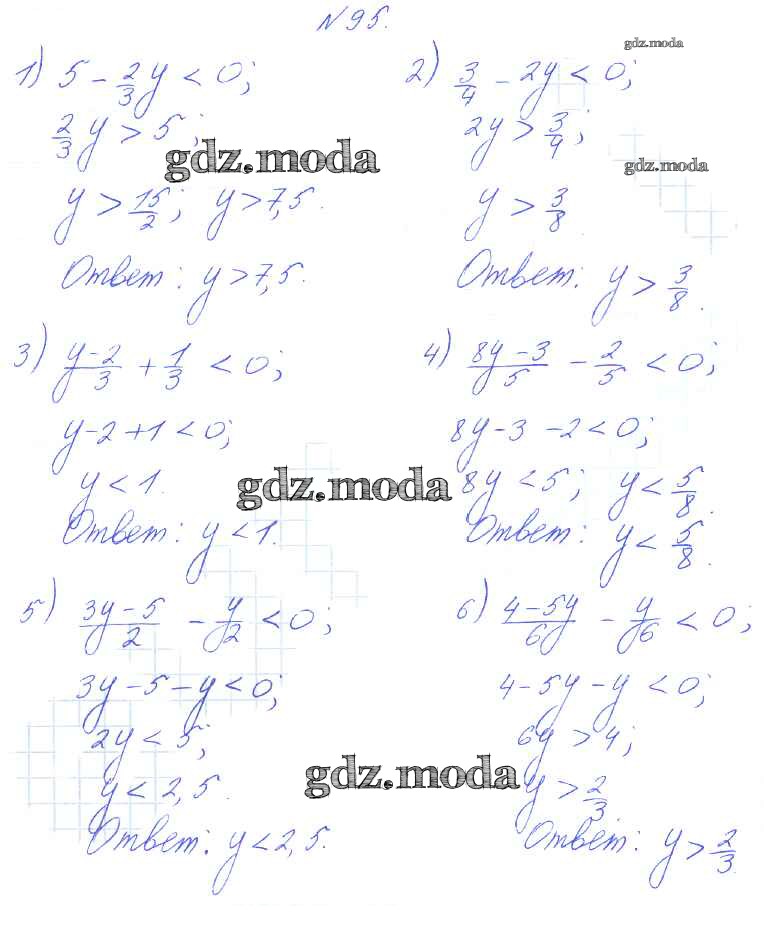 N 95.
gdz.moda
1) 5 - 2/3 y < 0;
2/3 y > 5;
gdz.moda
y > 15/2; y > 7,5.
Ответ: y > 7,5.
2) 3/4 - 2y < 0;
2y > 3/4;
gdz.moda
y > 3/8.
Ответ: y > 3/8.
3) y-2/3 + 1/3 < 0;
y-2+1 < 0;
y < 1.
gdz.moda
Ответ: y < 1.
4) 8y-3/5 - 2/5 < 0;
8y-3-2 < 0;
8y < 5; y < 5/8.
Ответ: y < 5/8.
5) 3y-5/2 - y/2 < 0;
3y-5-y < 0;
2y < 5;
y < 2,5.
gdz.moda
Ответ: y < 2,5.
6) 4-5y/6y - y/6 < 0;
4-5y-y < 0;
6y > 4;
y > 2/3.
Ответ: y > 2/3.